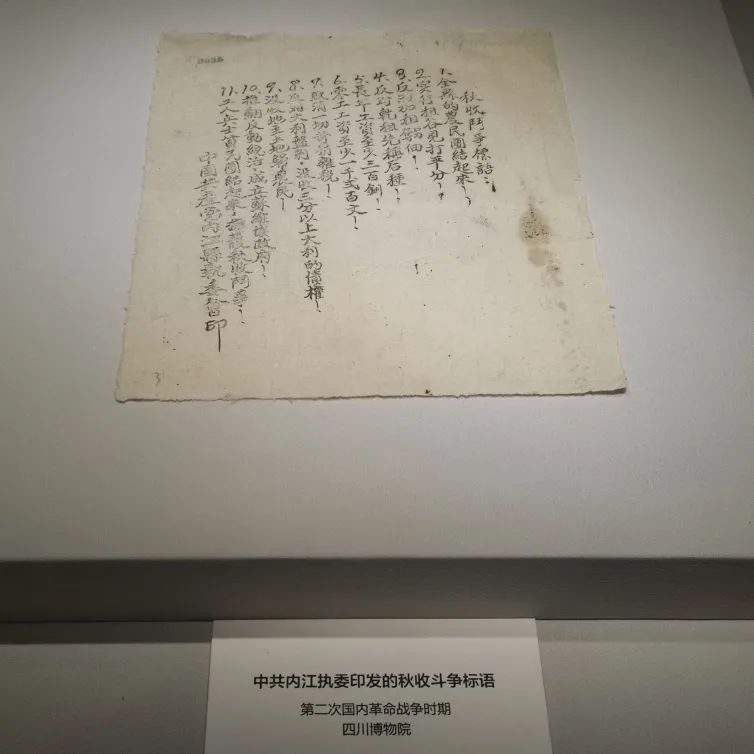 3835
秋收鬥爭標語：
1. 全縣的農民團結起來！
2. 實行租谷見打平分！
3. 反对加租𠝹佃！
4. 反对乾租先稱后種！
5. 長年工資至少三百釧！
6. 零工工資至少一千弍百文！
7. 取消一切苛捐雜稅！
8. 反对大利盤剝，沒收三分以上大利的債權！
9. 沒收地主土地歸農民！
10. 推翻反動統治，成立蘇維埃政府！
11. 工人兵士貧民團結起來，擁護秋收鬥爭！
中國共產党內江縣執委會印
3
中共内江执委印发的秋收斗争标语
第二次国内革命战争时期
四川博物院